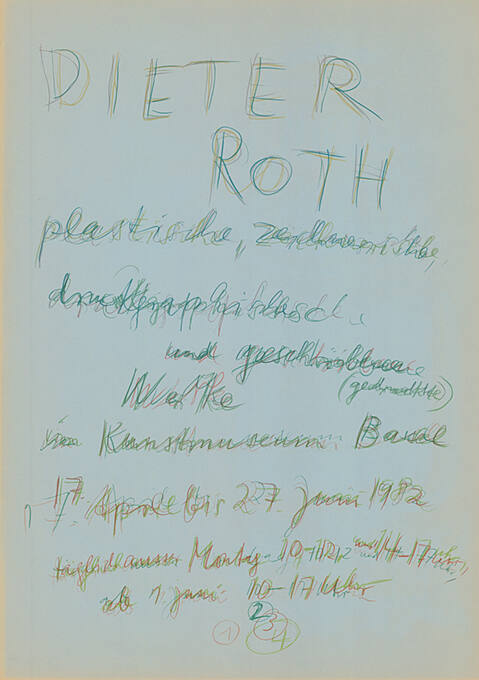 DIETER
ROTH
plastische, zeichnerische,
druckgraphische
und geschriebene
(gedruckte)
Werke
im Kunstmuseum Basel
17. April bis 27. Juni 1982
täglich ausser Montag 10-12 und 14-17 Uhr,
ab 1. Juni 10-17 Uhr
1 2 3 4